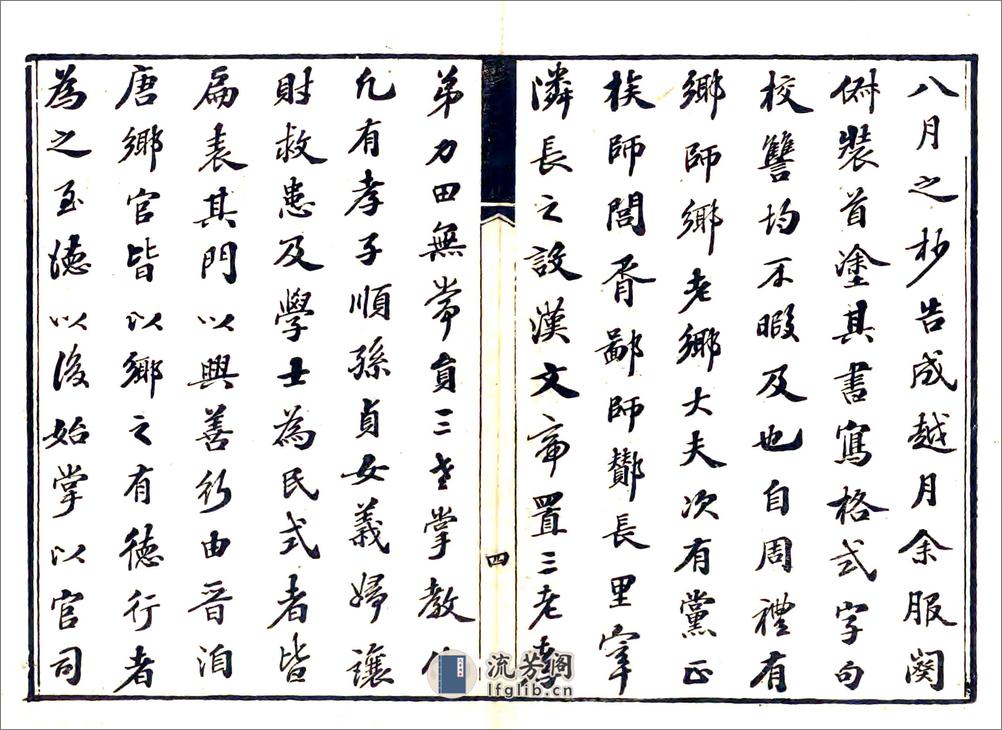 八月之杪告成越月余服闋
俶裝首塗其書寫格式字句
校讐均不暇及也自周禮有
鄉師鄉老鄉大夫次有黨正
族師閭胥鄙師酇長里宰
隣長之設漢文帝置三老孝
弟力田無常員三老掌教化
凡有孝子順孫貞女義婦讓
財救患及學士為民式者皆
扁表其門以興善行由晋洎
唐鄉官皆以鄉之有德行者
為之至德以後始掌以官司
四
流芳阁
lfglib.cn